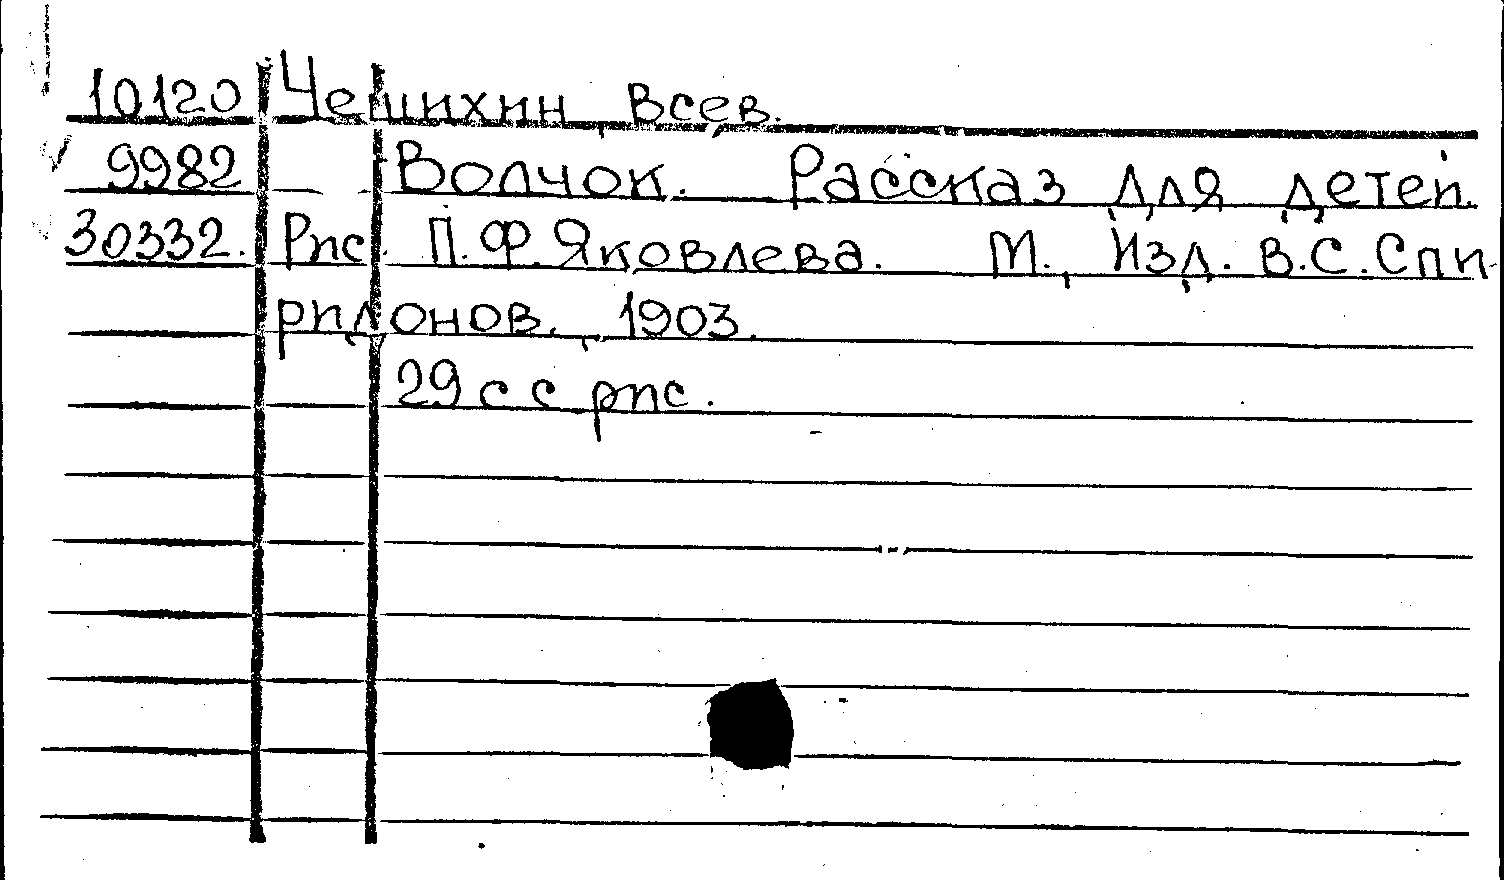 10120 Чешихин, Всев.
9982 Волчок. Рассказ для детей.
30332. Рис. П.Ф.Яковлева. М., Изд. В.С.Спи-
ридонов, 1903.
29 с с рис.